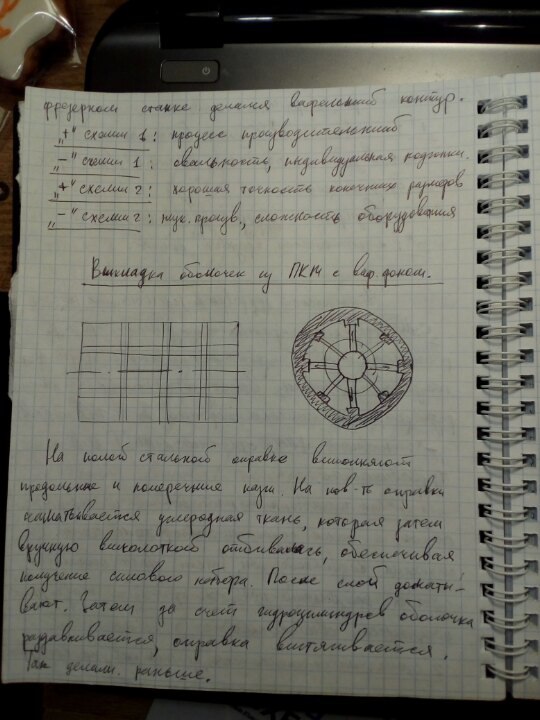 фрезерном станке делался вафельный контур.
"+" схемы 1: процесс производительный
"–" схемы 1: овальность, индивидуальная подгонка.
"+" схемы 2: хорошая точность конечных размеров
"–" схемы 2: произв., сложность оборудования
Выкладка оболочек из ПКМ с ваф. фоном.
На полой стальной оправке выполняют
продольные и поперечные пазы. На пов-ть оправки
наматывается углеродная ткань, которая затем
вручную отбивалась, обеспечивая
получение силового набора. После слой доматы-
вают. Затем за счет гидроцилиндров оболочка
раздавливается, оправка вытягивается.
Так делали раньше.